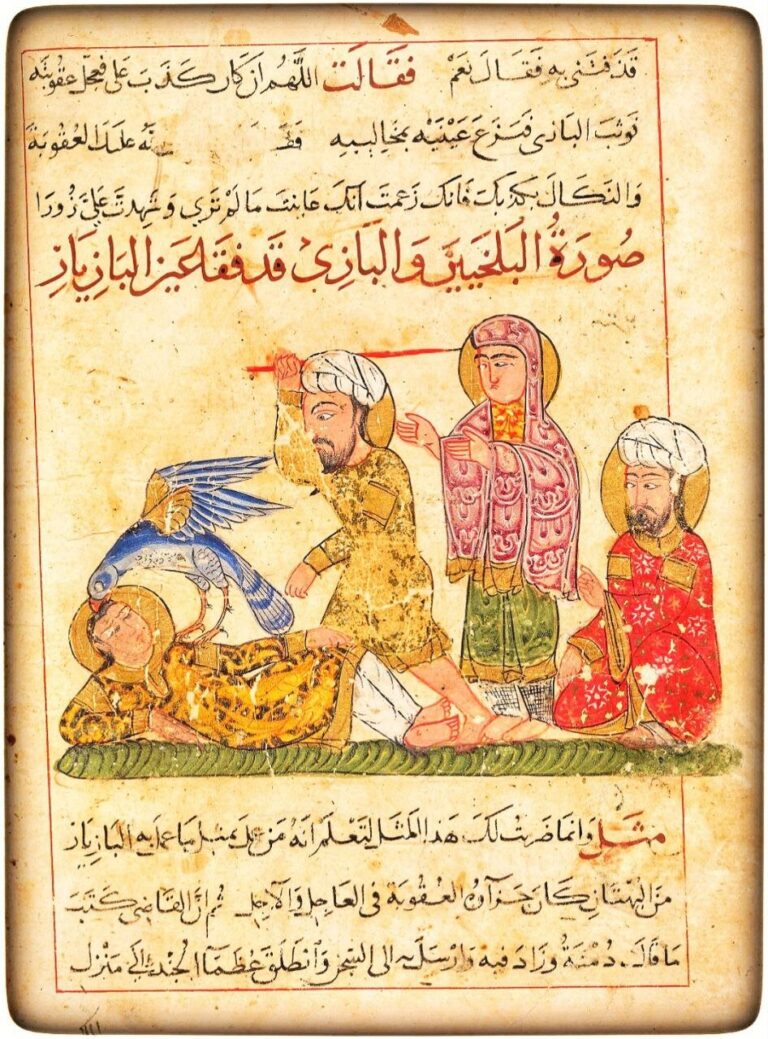 قذفتنى به فقال نعم فقالت اللهم ان كان كذب على فعجل عقوبته
فوثب البازى فنزع عينيه بمخاليبه عليك العقوبة
والنكال بكذبك فانك زعمت انك عاينت ما لم تري وشهدت علي زورا
صورة البلخيين والبازى قد فقا عين البازيار
مثل وانما ضربت لك هذا المثل لتعلم انه من عمل بمثل ما عمل به البازيار
من البهتان كان جزآوه العقوبة فى العاجل والآجل ثم ان القاضى كتب
ما قال دمنة وزاد فيه وارسل به الى السجن وانطلق عظمآ الجند الى منزل